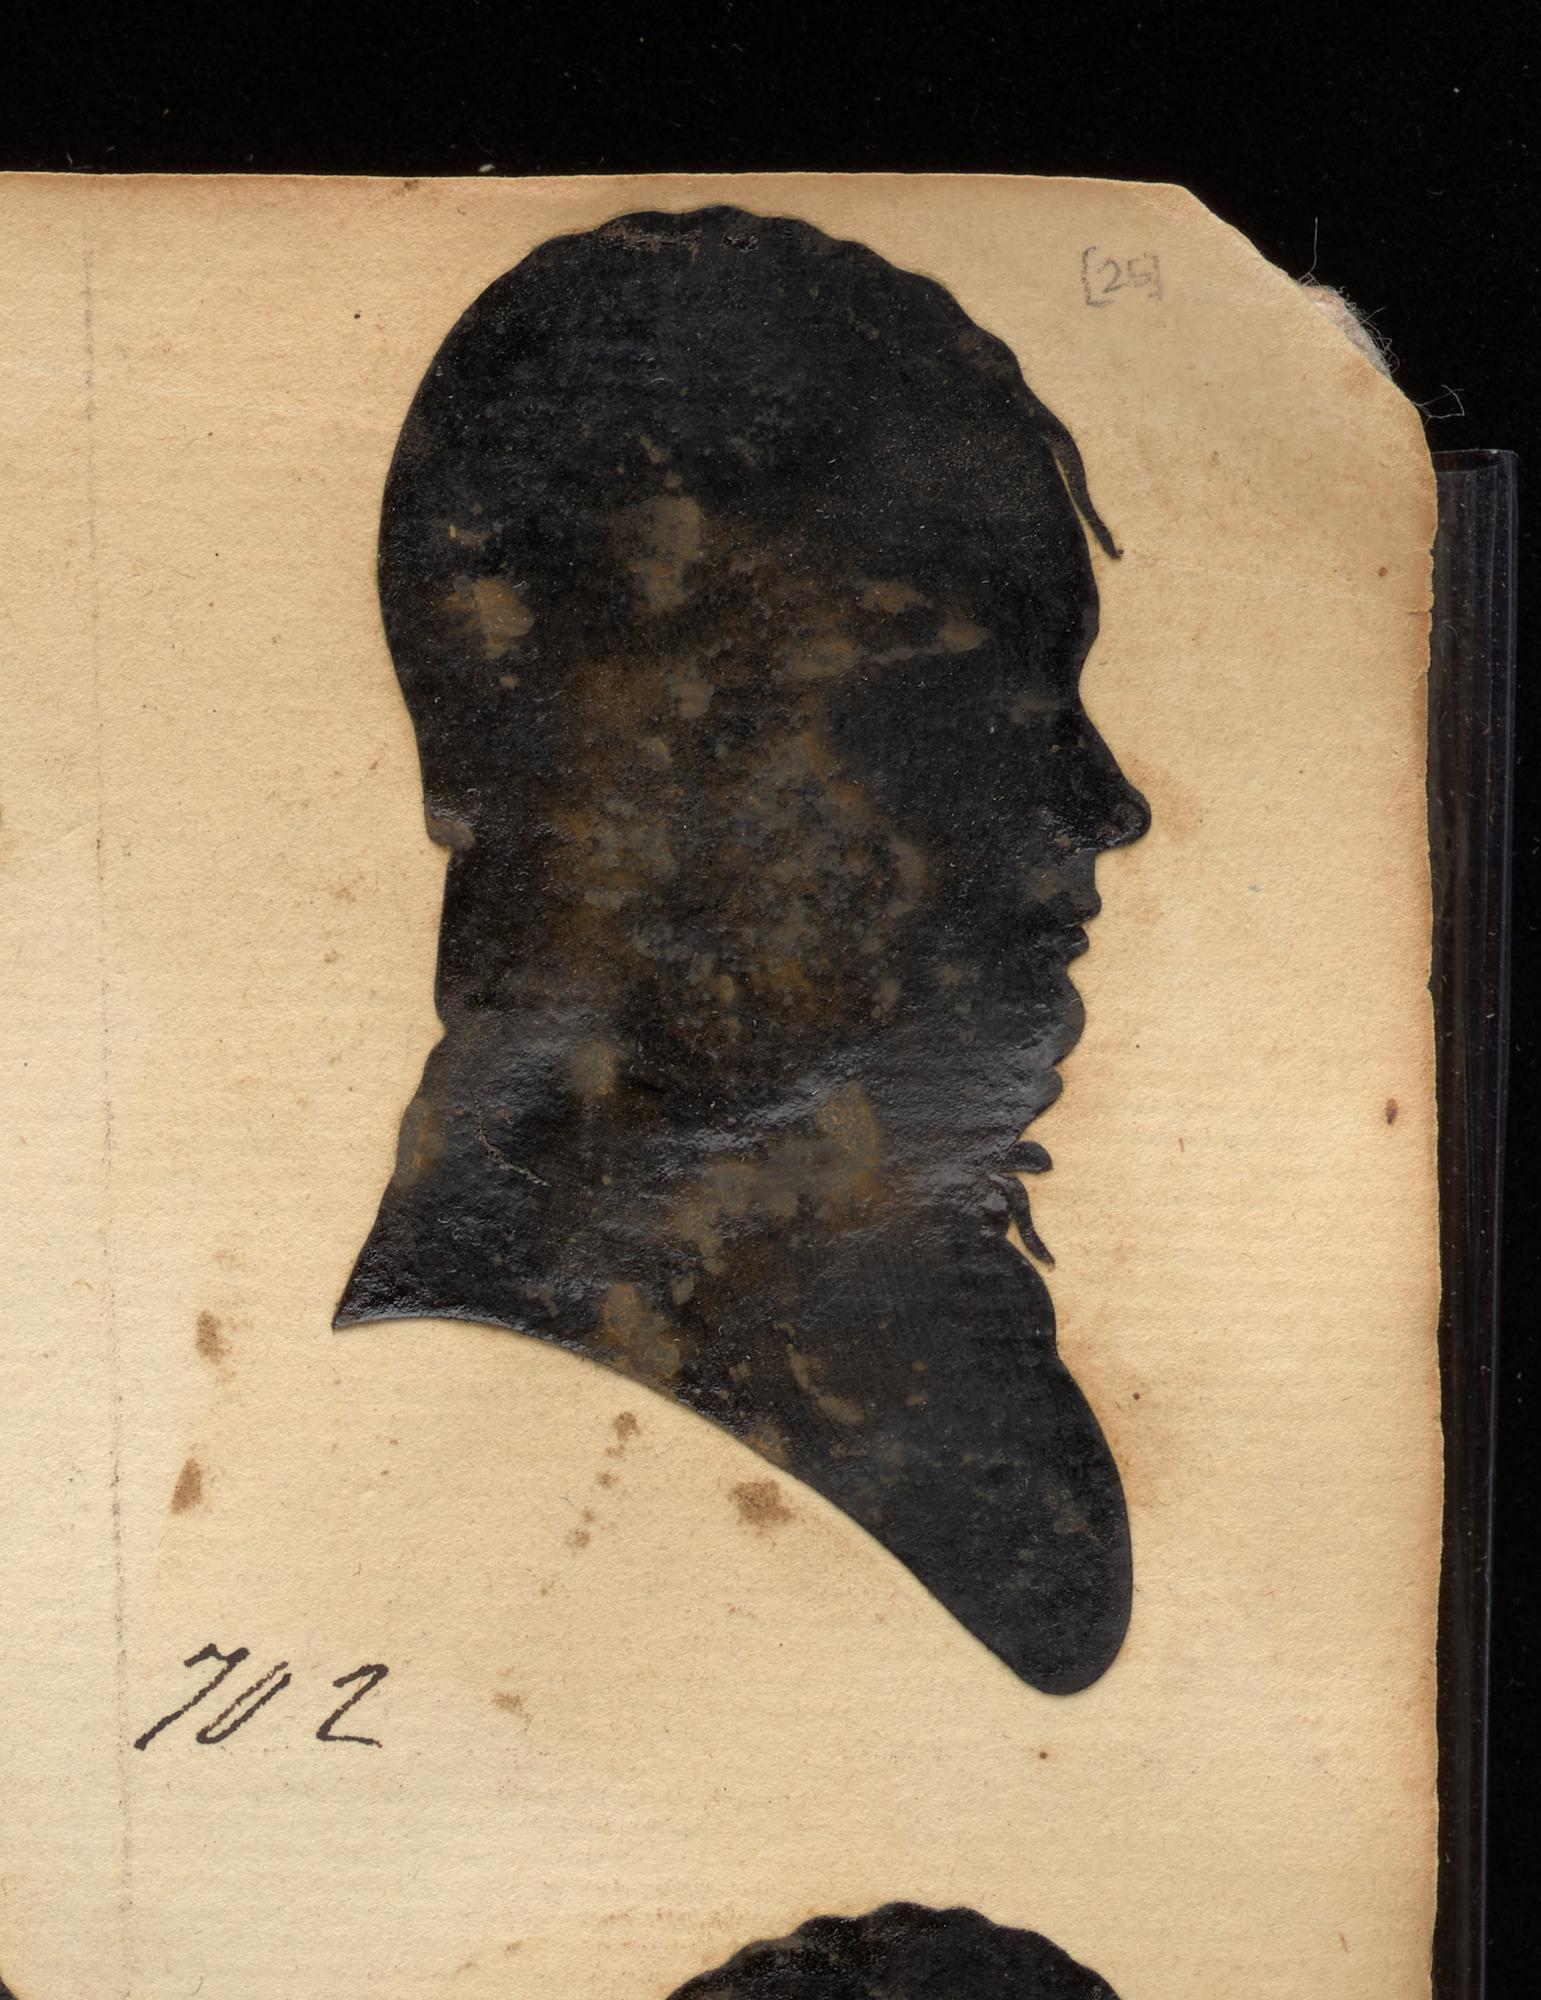 [25]
702